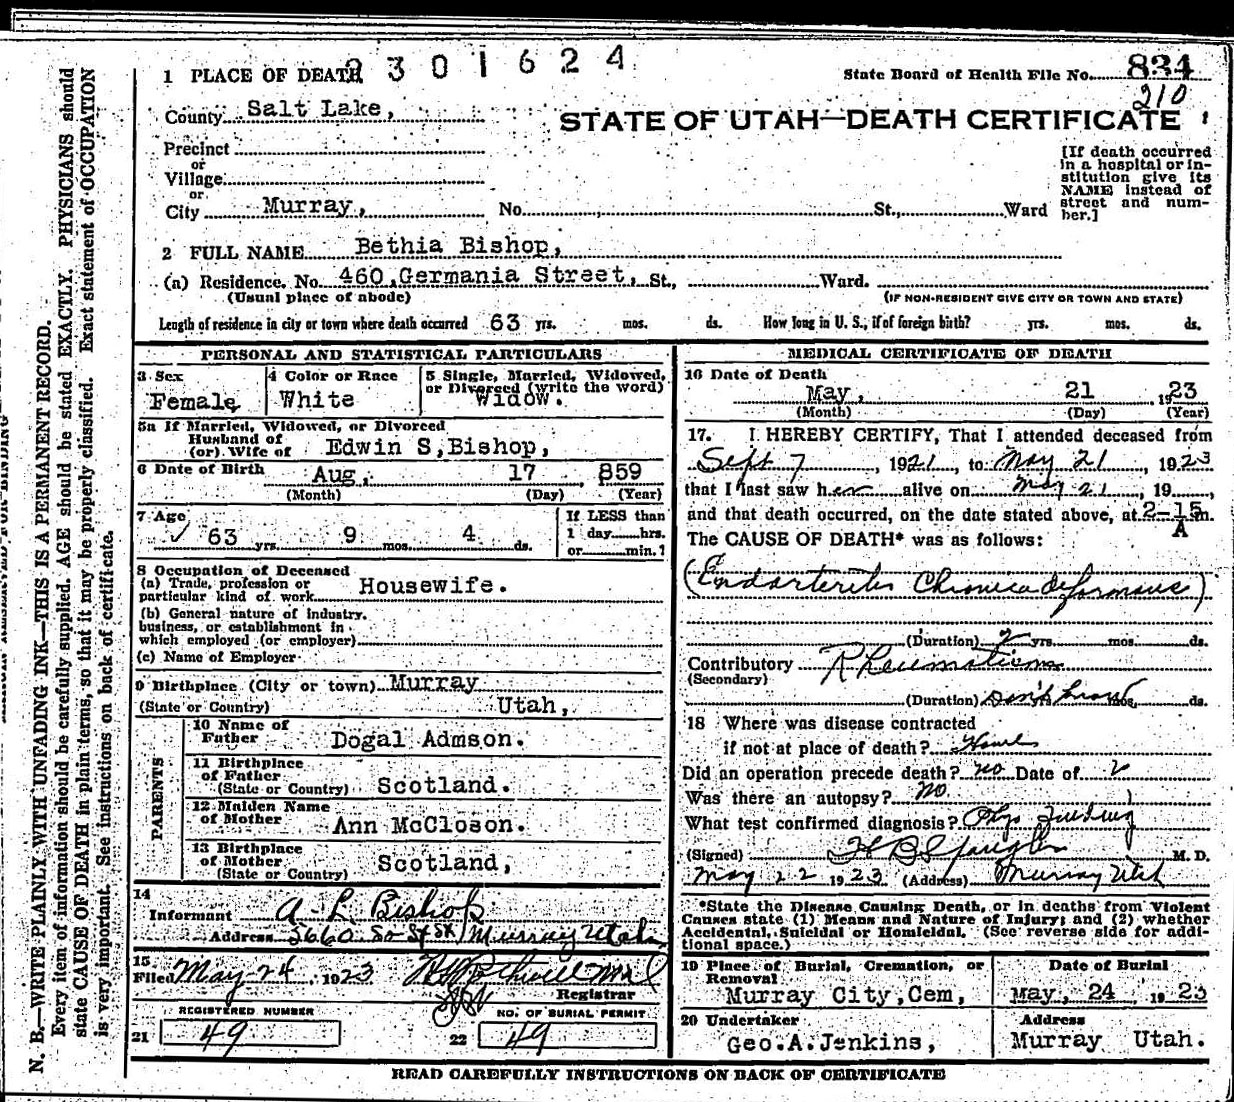 2301624
1 PLACE OF DEATH
State Board of Health File No. 834
210
County Salt Lake,
STATE OF UTAH—DEATH CERTIFICATE
Precinct
or
Village
or
City Murray, No. St., Ward
[If death occurred
in a hospital or in-
stitution give its
NAME instead of
street and num-
ber.]
2 FULL NAME Bethia Bishop,
(a) Residence. No. 460, Germania Street, St., Ward.
(Usual place of abode)
(IF NON-RESIDENT GIVE CITY OR TOWN AND STATE)
Length of residence in city or town where death occurred 63 yrs. mos. ds. How long in U. S., if of foreign birth? yrs. mos. ds.
PERSONAL AND STATISTICAL PARTICULARS
3 Sex
Female
4 Color or Race
White
5 Single, Married, Widowed,
or Divorced (write the word)
Widow.
5a If Married, Widowed, or Divorced
Husband of
(or) Wife of Edwin S, Bishop,
6 Date of Birth Aug, 17 859
(Month) (Day) (Year)
7 Age
63 yrs. 9 mos. 4 ds.
If LESS than
1 day hrs.
or min.?
8 Occupation of Deceased
(a) Trade, profession or
particular kind of work Housewife.
(b) General nature of industry.
business, or establishment in
which employed (or employer)
(c) Name of Employer
9 Birthplace (City or town) Murray
(State or Country) Utah,
PARENTS
10 Name of
Father Dogal Admson.
11 Birthplace
of Father
(State or Country) Scotland.
12 Maiden Name
of Mother Ann McCloson.
13 Birthplace
of Mother
(State or Country) Scotland,
14
Informant A. L. Bishop
Address 5660 So St St Murray Utah
15
Filed May 24, 1923 M.D.
Registrar
REGISTERED NUMBER
21 49
NO. OF BURIAL PERMIT
22 49
MEDICAL CERTIFICATE OF DEATH
16 Date of Death
May, 21 1923
(Month) (Day) (Year)
17. I HEREBY CERTIFY, That I attended deceased from
Sept 7, 1921, to May 21, 1923
that I last saw her alive on May 21, 19
and that death occurred, on the date stated above, at 2-15 m.
A
The CAUSE OF DEATH* was as follows:
(Endarteritis Chronica deformans)
(Duration) 2 yrs. mos. ds.
Contributory Rheumatism
(Secondary)
(Duration) Don't know yrs. mos. ds.
18 Where was disease contracted
if not at place of death? Home
Did an operation precede death? no Date of
Was there an autopsy? no
What test confirmed diagnosis? Phys Finding
(Signed) M. D.
May 22 1923 (Address) Murray Utah
*State the Disease Causing Death, or in deaths from Violent
Causes state (1) Means and Nature of Injury; and (2) whether
Accidental, Suicidal or Homicidal. (See reverse side for addi-
tional space.)
19 Place of Burial, Cremation, or
Removal
Murray City, Cem,
Date of Burial
May, 24 1923
20 Undertaker
Geo. A. Jenkins,
Address
Murray Utah.
READ CAREFULLY INSTRUCTIONS ON BACK OF CERTIFICATE
N. B.—WRITE PLAINLY WITH UNFADING INK—THIS IS A PERMANENT RECORD.
Every item of information should be carefully supplied. AGE should be stated EXACTLY. PHYSICIANS should
state CAUSE OF DEATH in plain terms, so that it may be properly classified. Exact statement of OCCUPATION
is very important. See instructions on back of certificate.